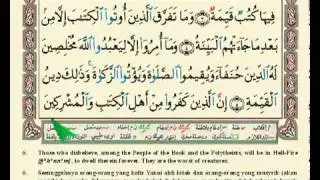 فِيهَا كُتُبٌ قَيِّمَةٌ ۝ وَمَا تَفَرَّقَ ٱلَّذِينَ أُوتُوا۟ ٱلْكِتَٰبَ إِلَّا مِنۢ
بَعْدِ مَا جَآءَتْهُمُ ٱلْبَيِّنَةُ ۝ وَمَآ أُمِرُوٓا۟ إِلَّا لِيَعْبُدُوا۟ ٱللَّهَ مُخْلِصِينَ
لَهُ ٱلدِّينَ حُنَفَآءَ وَيُقِيمُوا۟ ٱلصَّلَوٰةَ وَيُؤْتُوا۟ ٱلزَّكَوٰةَ وَذَٰلِكَ دِينُ
ٱلْقَيِّمَةِ ۝ إِنَّ ٱلَّذِينَ كَفَرُوا۟ مِنْ أَهْلِ ٱلْكِتَٰبِ وَٱلْمُشْرِكِينَ
6. Those who disbelieve, among the People of the Book and the Polytheists, will be in Hell-Fire
to dwell therein forever. They are the worst of creatures.
6. Sesungguhnya orang-orang yang kafir Yakni ahli kitab dan orang-orang yang musyrik (akan